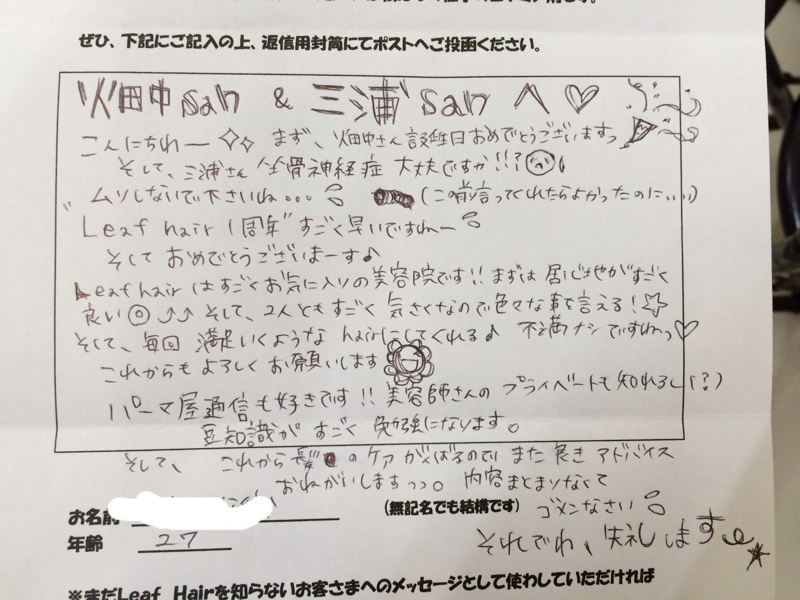 ぜひ、下記にご記入の上、返信用封筒にてポストへご投函ください。
畑中san & 三浦san へ♡
こんにちわー まず、畑中さん誕生日おめでとうございますっ
そして、三浦さん 坐骨神経症 大丈夫ですか!!?
ムリしないで下さいね... (この前言ってくれたらよかったのに...)
Leaf hair 1周年" すごく早いですねー
そして おめでとうございまーす♪
Leaf hair はすごくお気に入りの美容院です!! まずは 居心地がすごく
良い ⤴⤴ そして、2人ともすごく 気さくなので色々な事を言える!☆
そして、毎回 満足いくような hairにしてくれる♪ 不満ナシですねっ♡
これからも よろしく お願いします
パーマ屋通信も好きです!! 美容師さんの プライベートも知れるし(?)
豆知識が すごく 勉強になります。
そして、 これから髪 のケア がんばるので また 良き アドバイス
おねがいしますっっ。 内容まとまりなくて
お名前 (無記名でも結構です) ゴメンなさい
年齢 27 それでわ、失礼します
※まだLeaf Hairを知らないお客さまへのメッセージとして使わしていただければ